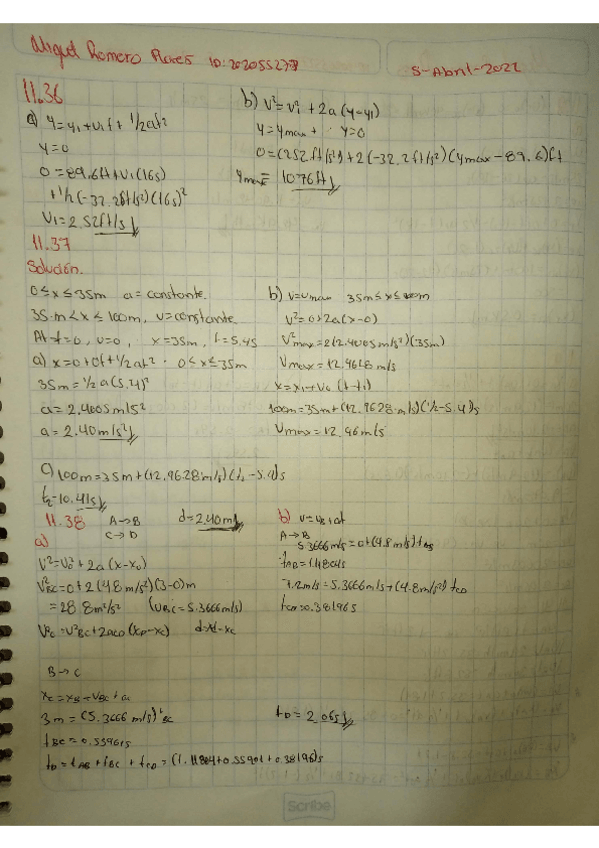 Miguel Romero Flores ID:202055237
5-Abril-2022
11.36
a) y=y₁+v₁t+1/2at²
y=0
0=89.6ft+v₁(16s)
+1/2(-32.2ft/s²)(16s)²
V₁=252ft/s
b) v²=v₁²+2a(y-y₁)
y=ymax + · y=0
0=(252ft/s²)+2(-32.2ft/s²)(ymax-89.6)ft
ymax= 1076ft
11.37
Solución.
0≤x≤35m a=constante.
35m<x≤100m, v=constante
At t=0, v=0, x=35m, t=5.4s
a) x=0+0t+1/2at² · 0≤x≤35m
35m=1/2a(5.4)²
a=2.4005m/s²
a=2.40m/s²
b) v=vmax 35m≤x≤100m
v²=0+2a(x-0)
V²max=2(2.4005m/s²)(35m)
Vmax=12.9628m/s
x=x₁+v₀(t-t₁)
100m=35m+(12.9628m/s)(t₂-5.4)s
Vmax=12.96m/s
c) 100m=35m+(12.9628m/s)(t₂-5.4)s
t₂=10.41s
11.38 A→B d=2.40m
C→D
a)
V²=V₀²+2a(x-x₀)
V²BC=0+2(4.8m/s²)(3-0)m
=28.8m²/s² (VBC=5.3666m/s)
V²D=V²BC+2aCD(xD-xC) d=xd-xc
b) v=v₀+at
A→B
5.3666m/s=0+(4.8m/s²)tAB
tAB=1.1804s
-7.2m/s=5.3666m/s+(4.8m/s²)tCD
tCD=0.38196s
B→C
xC=xB+VBC+
3m=(5.3666m/s)tBC
tBC=0.55901s
tD=tAB+tBC+tCD=(1.11804+0.55901+0.38196)s
tD=2.06s
Scribe